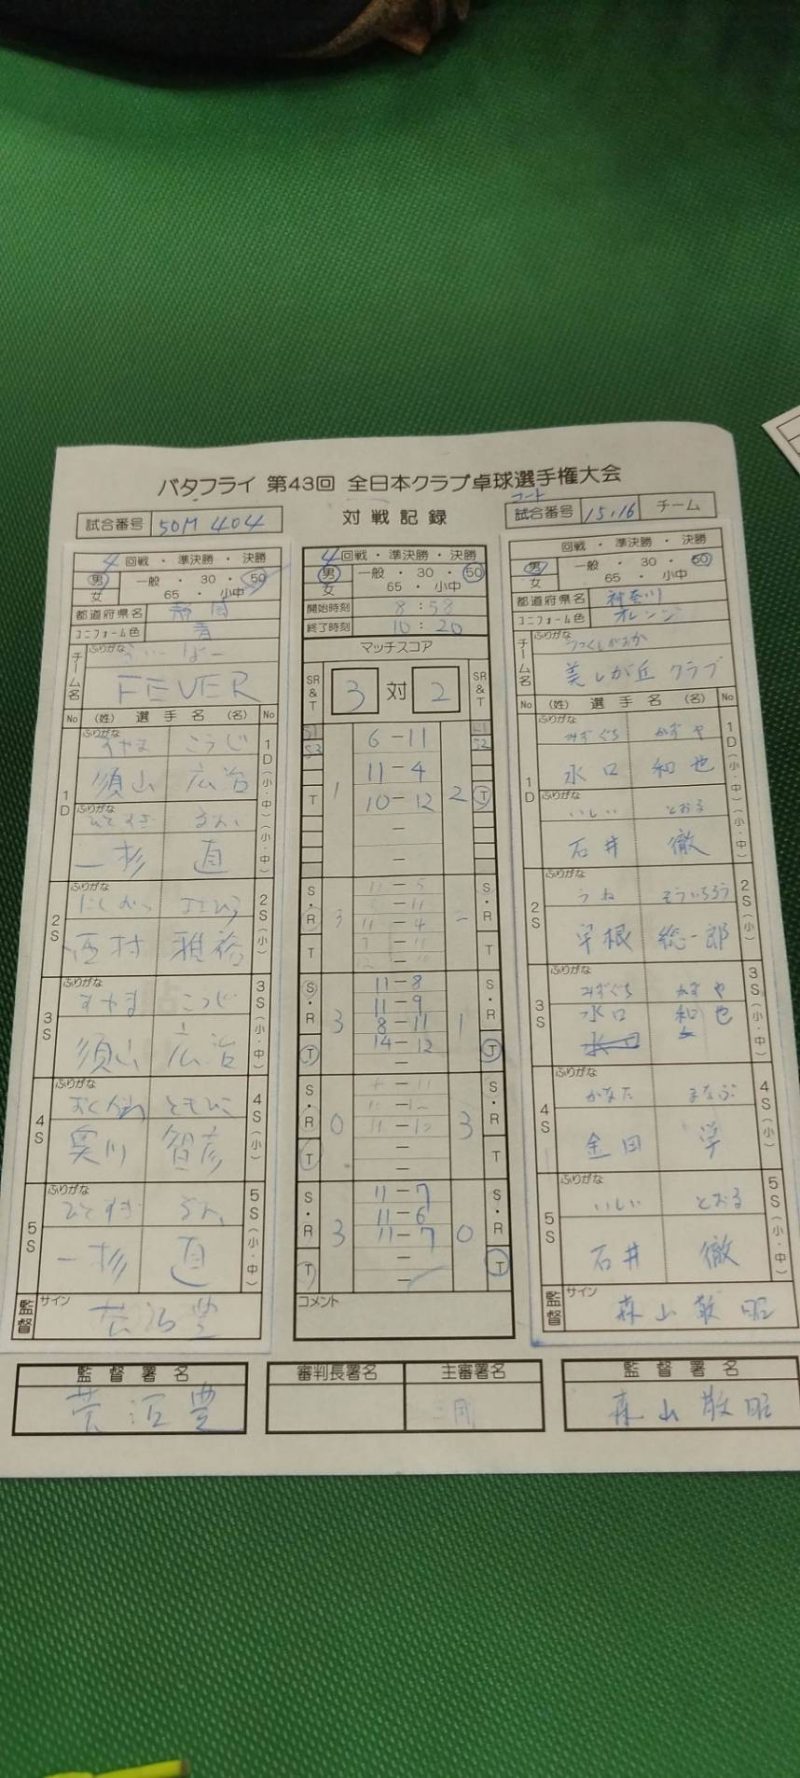 バタフライ 第43回 全日本クラブ卓球選手権大会
試合番号 50M 404
対戦記録
コート
試合番号 15.16 チーム
4回戦・準決勝・決勝
男 一般・30・50
女 65・小中
都道府県名 静岡
ユニフォーム色 青
ふりがな
チーム名 FEVER
No (姓) 選手名 (名) No
1D
ふりがな すやま こうじ
須山 広治
ふりがな
一杉 直
1D(小・中)(小・中)
2S
ふりがな
西村 雅裕
2S(小)
3S
ふりがな すやま こうじ
須山 広治
3S(小・中)
4S
ふりがな ともひこ
奥川 智彦
4S(小)
5S
ふりがな ひとすぎ
一杉 直
5S(小・中)
監督 サイン
4回戦・準決勝・決勝
男 一般・30・50
女 65・小中
開始時刻 8:58
終了時刻 10:20
マッチスコア
SR&T 3 対 2 SR&T
1 2
6-11
11-4
10-12
T T
S・R 3 S・R
T T
S・R 3 1 S・R
11-8
11-9
8-11
14-12
T T
S・R 0 3 S・R
T T
S・R 3 0 S・R
11-7
11-6
11-7
T T
コメント
回戦・準決勝・決勝
男 一般・30・50
女 65・小中
都道府県名 神奈川
ユニフォーム色 オレンジ
ふりがな うつくしがおか
チーム名 美しが丘クラブ
No (姓) 選手名 (名) No
1D
ふりがな みずぐち かずや
水口 和也
ふりがな いしい とおる
石井 徹
1D(小・中)(小・中)
2S
ふりがな うね そういちろう
宇根 総一郎
2S(小)
3S
ふりがな みずぐち かずや
水口 和也
3S(小・中)
4S
ふりがな かなた まなぶ
金田 学
4S(小)
5S
ふりがな いしい とおる
石井 徹
5S(小・中)
監督 サイン 森山敬昭
監督署名
審判長署名 主審署名
監督署名
森山敬昭